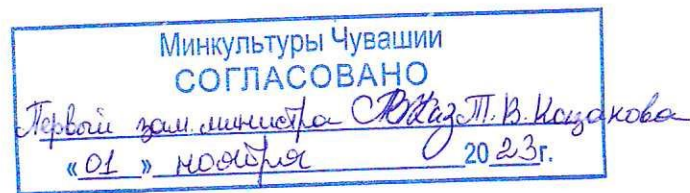 Минкультуры Чувашии
СОГЛАСОВАНО
Первый зам. министра Т.В. Казакова
«01» ноября 2023г.